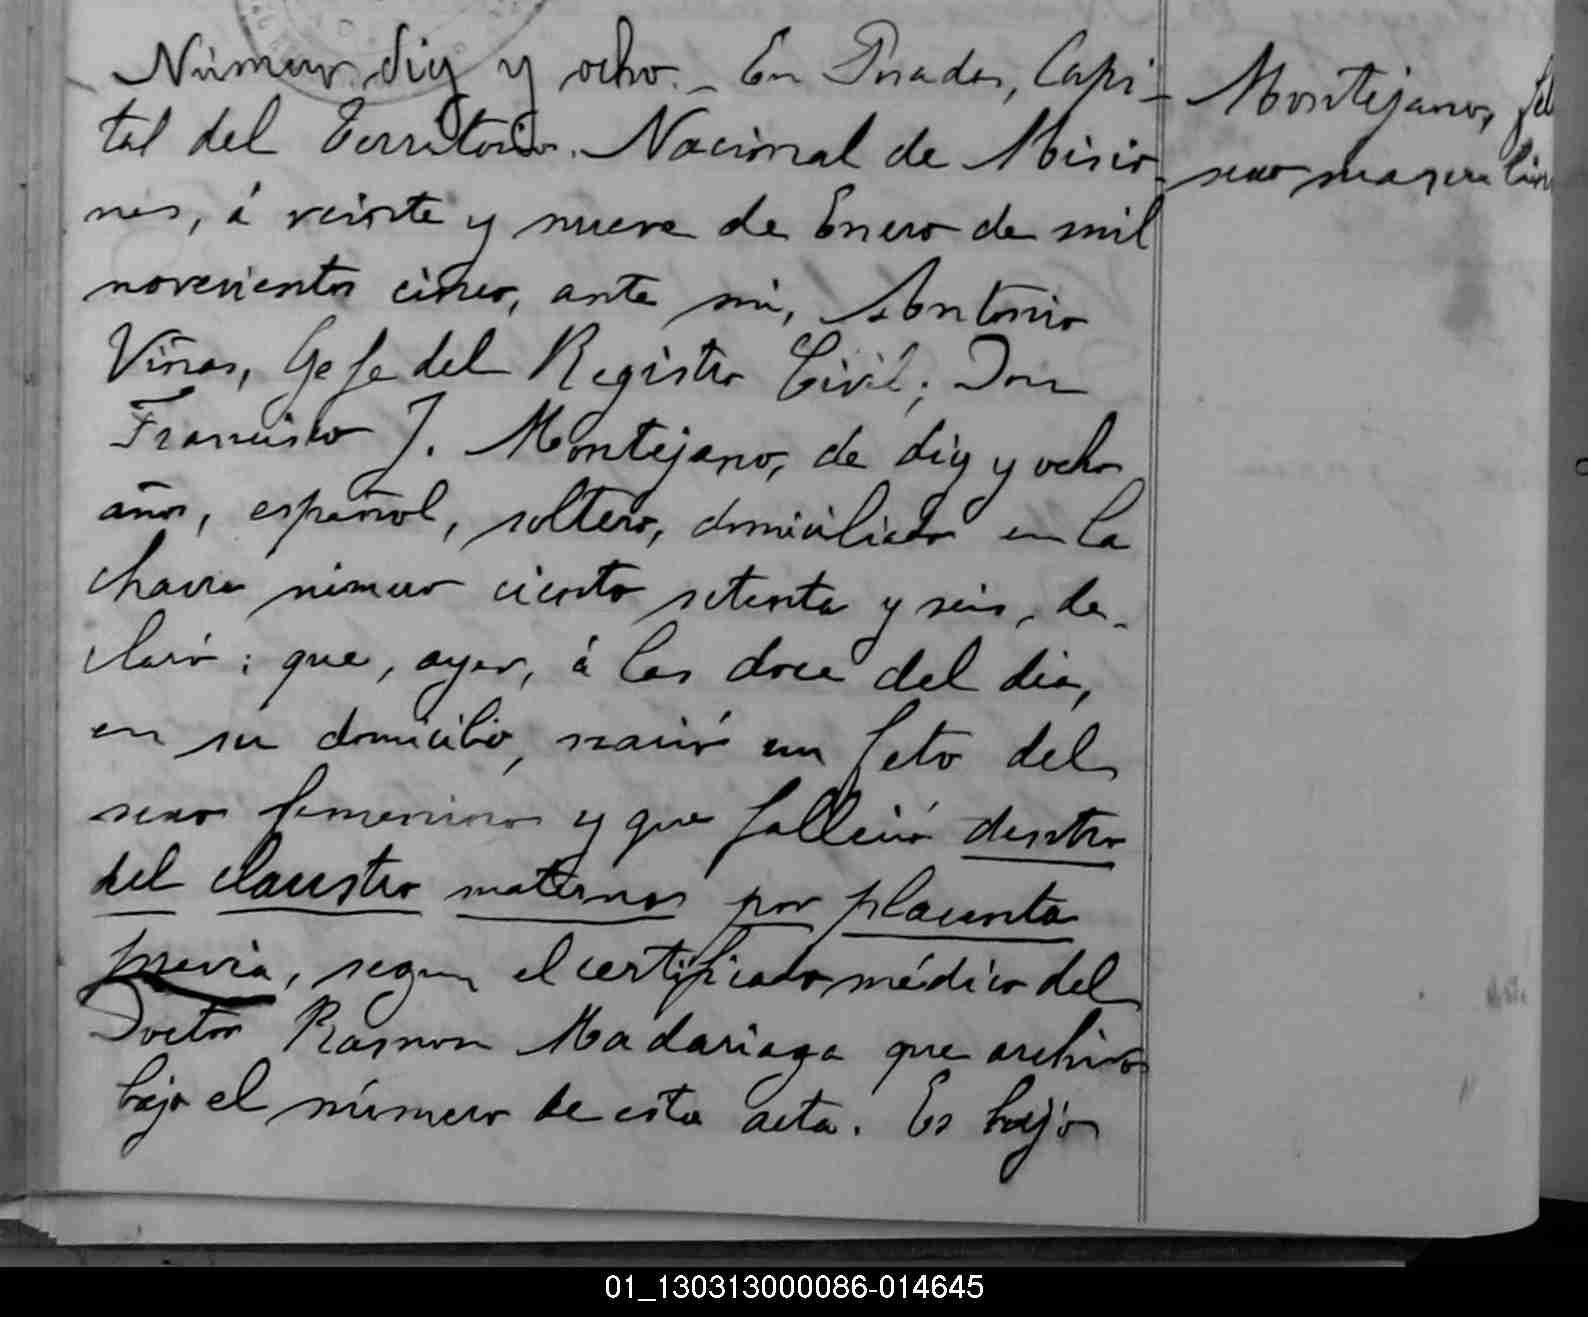 Número diez y ocho._ En Posadas, Capi-
tal del Territorio Nacional de Misio-
nes, á veinte y nueve de Enero de mil
novecientos cinco, ante mi, Antonio
Viñas, Gefe del Registro Civil; Don
Francisco J. Montejano, de diez y ocho
años, español, soltero, domiciliado en la
chacra número ciento setenta y seis, de-
claró: que, ayer, á las doce del dia,
en su domicilio, nació un feto del
sexo femenino y que falleció dentro
del claustro materno por placenta
previa, segun el certificado médico del
Doctor Ramon Madariaga que archivo
bajo el número de esta acta. Es hijo
Montejano,
sexo masculino
01_130313000086-014645